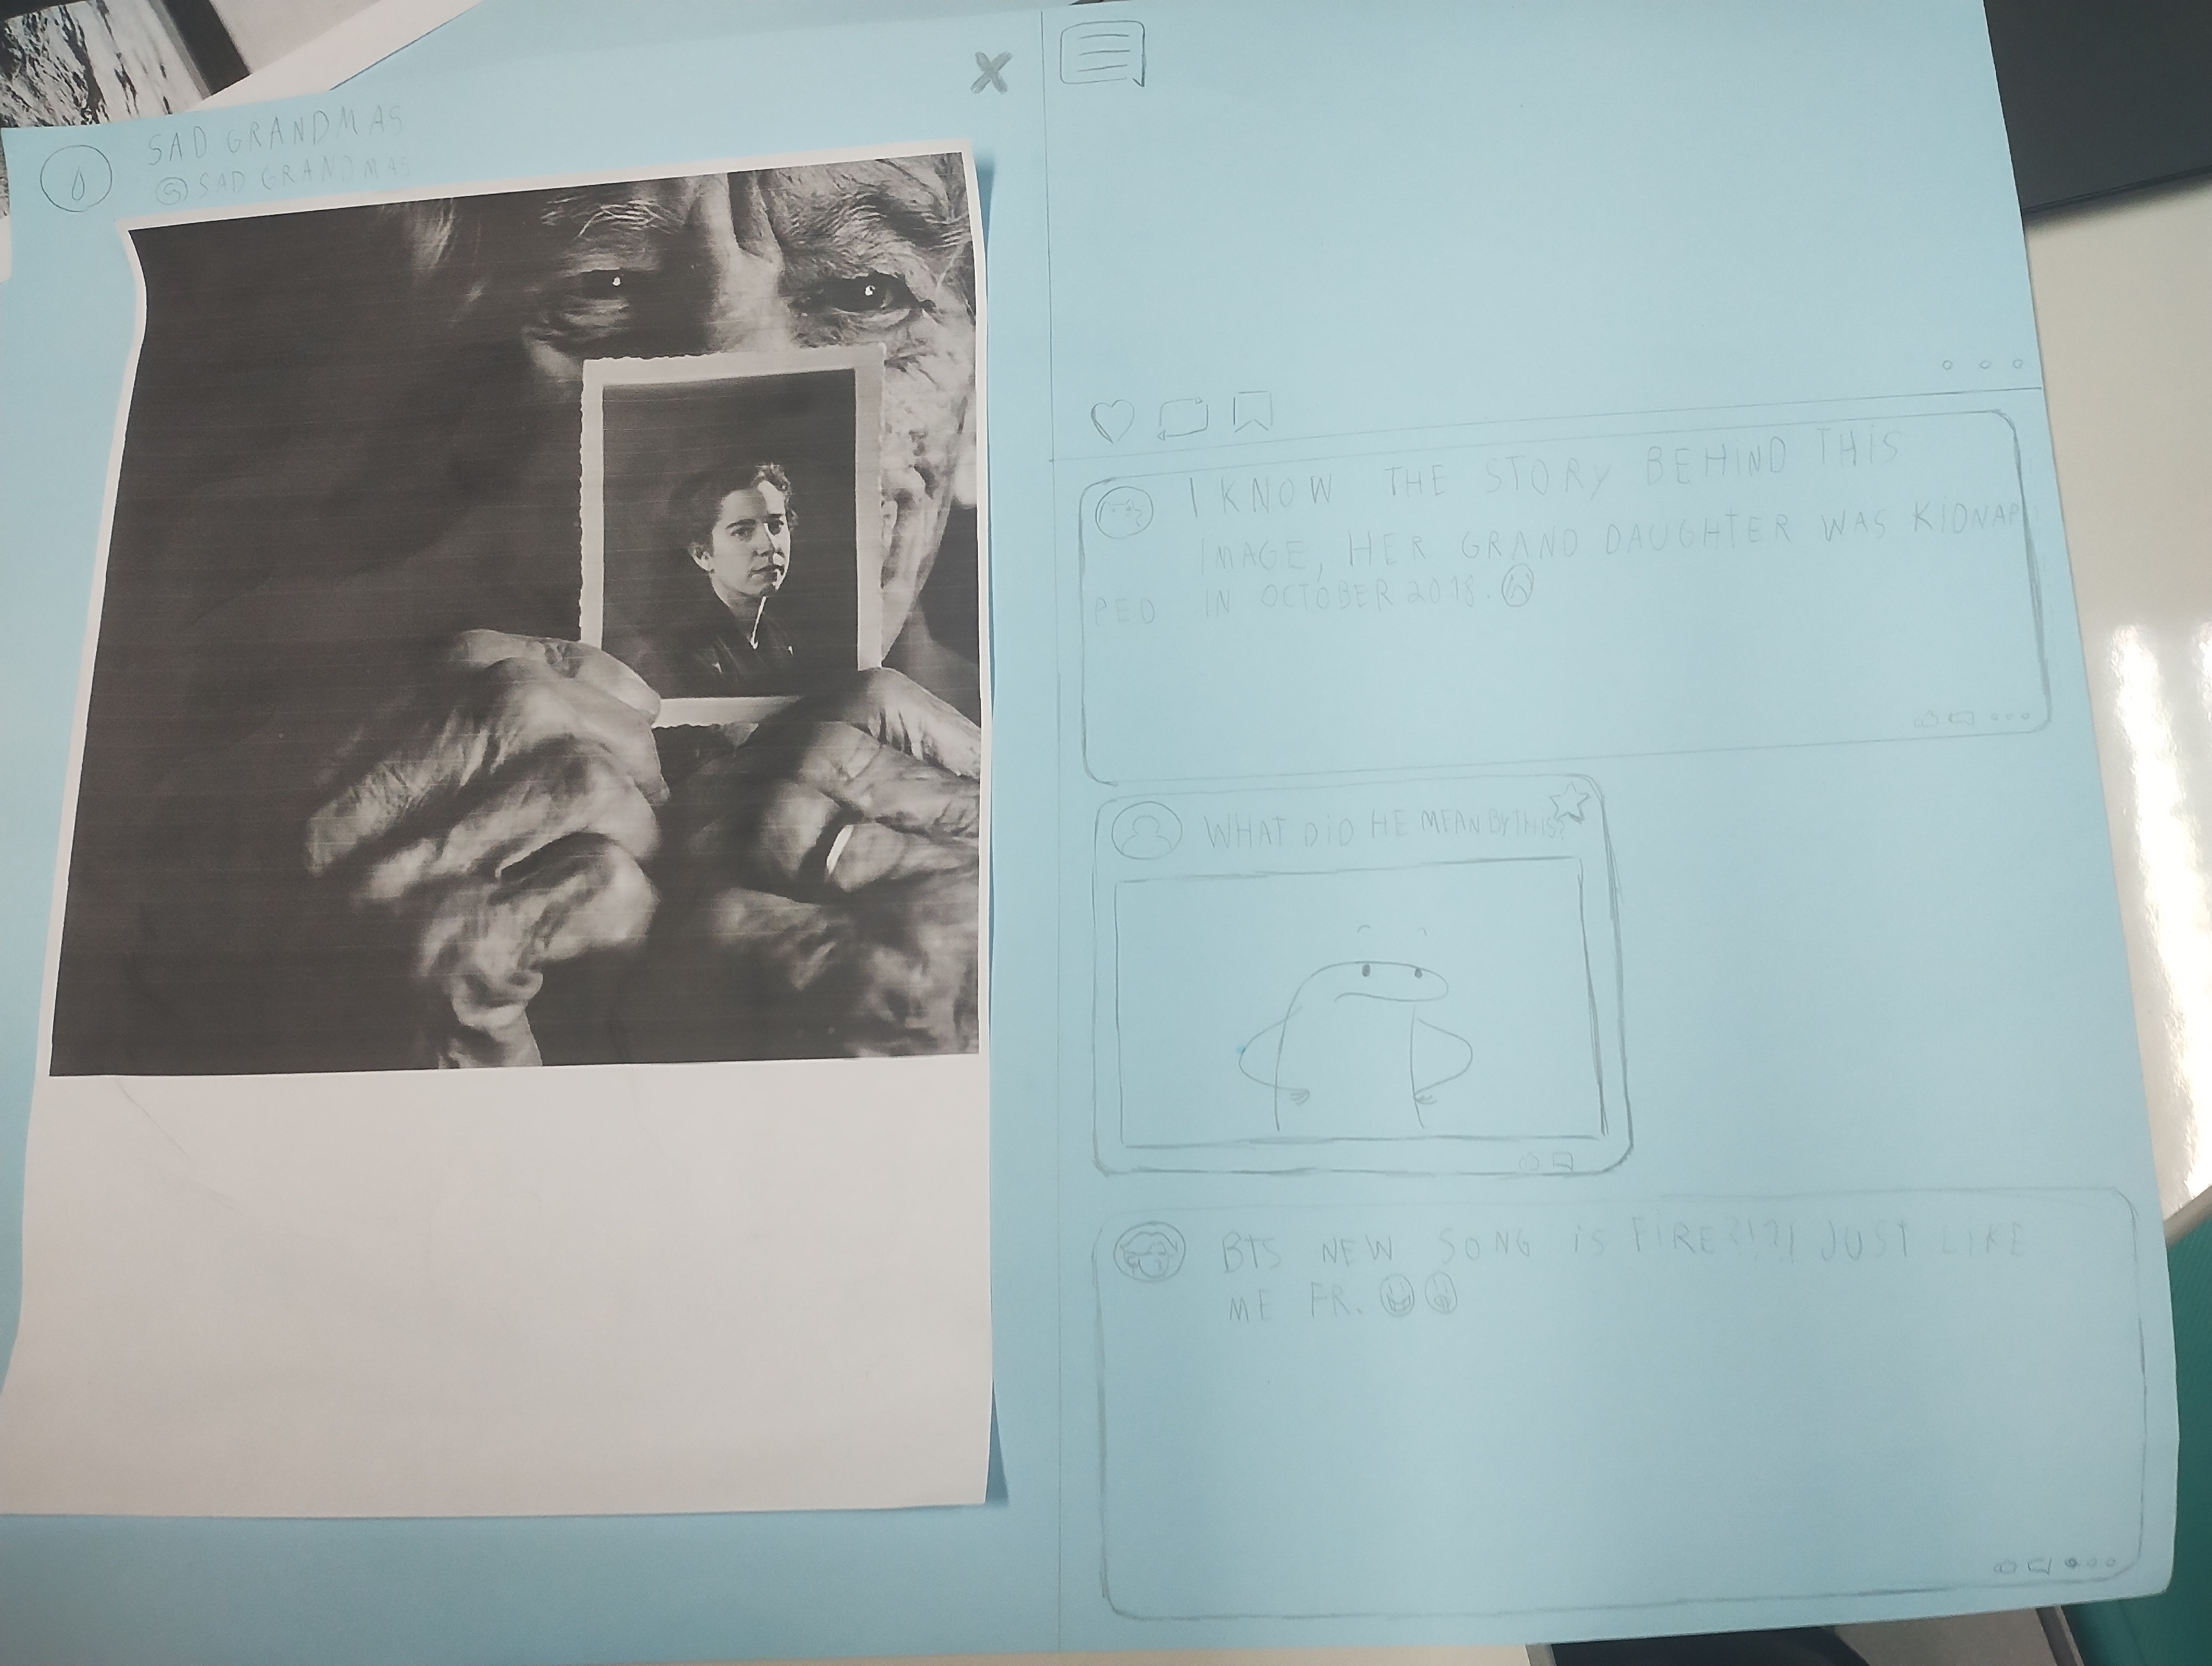 SAD GRANDMAS
@SAD GRANDMAS
I KNOW THE STORY BEHIND THIS
IMAGE, HER GRAND DAUGHTER WAS KIDNAP
PED IN OCTOBER 2018.
WHAT DID HE MEAN BY THIS?
BTS NEW SONG IS FIRE?!?! JUST LIKE
ME FR.